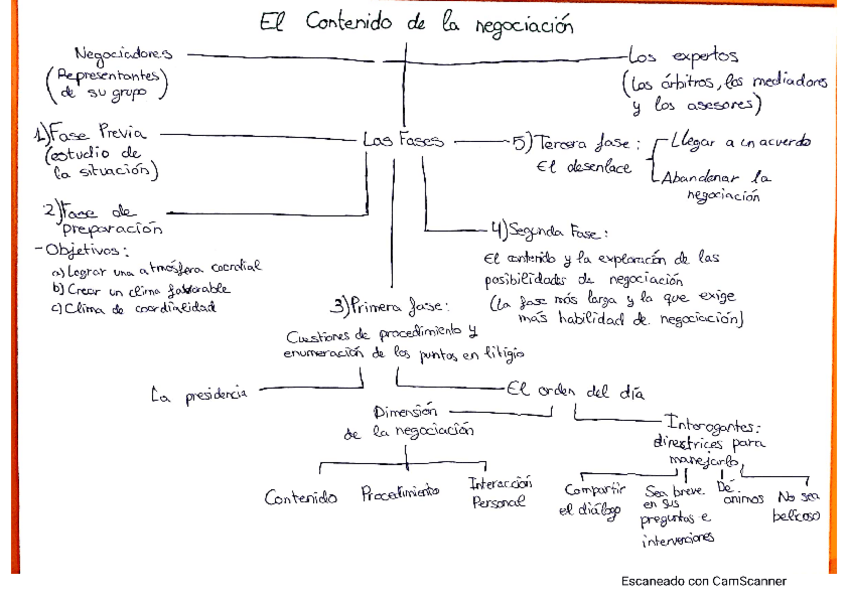 El Contenido de la negociación
Negociadores
(Representantes
de su grupo)
Los expertos
(Los árbitros, los mediadores
y los asesores)
1) Fase Previa
(estudio de
la situación)
Las Fases
5) Tercera fase:
El desenlace
Llegar a un acuerdo
Abandonar la
negociación
2) Fase de
preparación
- Objetivos:
a) Lograr una atmósfera coordial
b) Crear un clima favorable
c) Clima de coordialidad
4) Segunda Fase:
El contenido y la exploración de las
posibilidades de negociación
(La fase más larga y la que exige
más habilidad de negociación)
3) Primera fase:
Cuestiones de procedimiento y
enumeración de los puntos en litigio
La presidencia
El orden del día
Dimensión
de la negociación
Interogantes:
directrices para
manejarlo
Contenido
Procedimiento
Interacción
Personal
Compartir
el diálogo
Sea breve
en sus
preguntas e
intervenciones
Dé
animos
No sea
belicoso
Escaneado con CamScanner